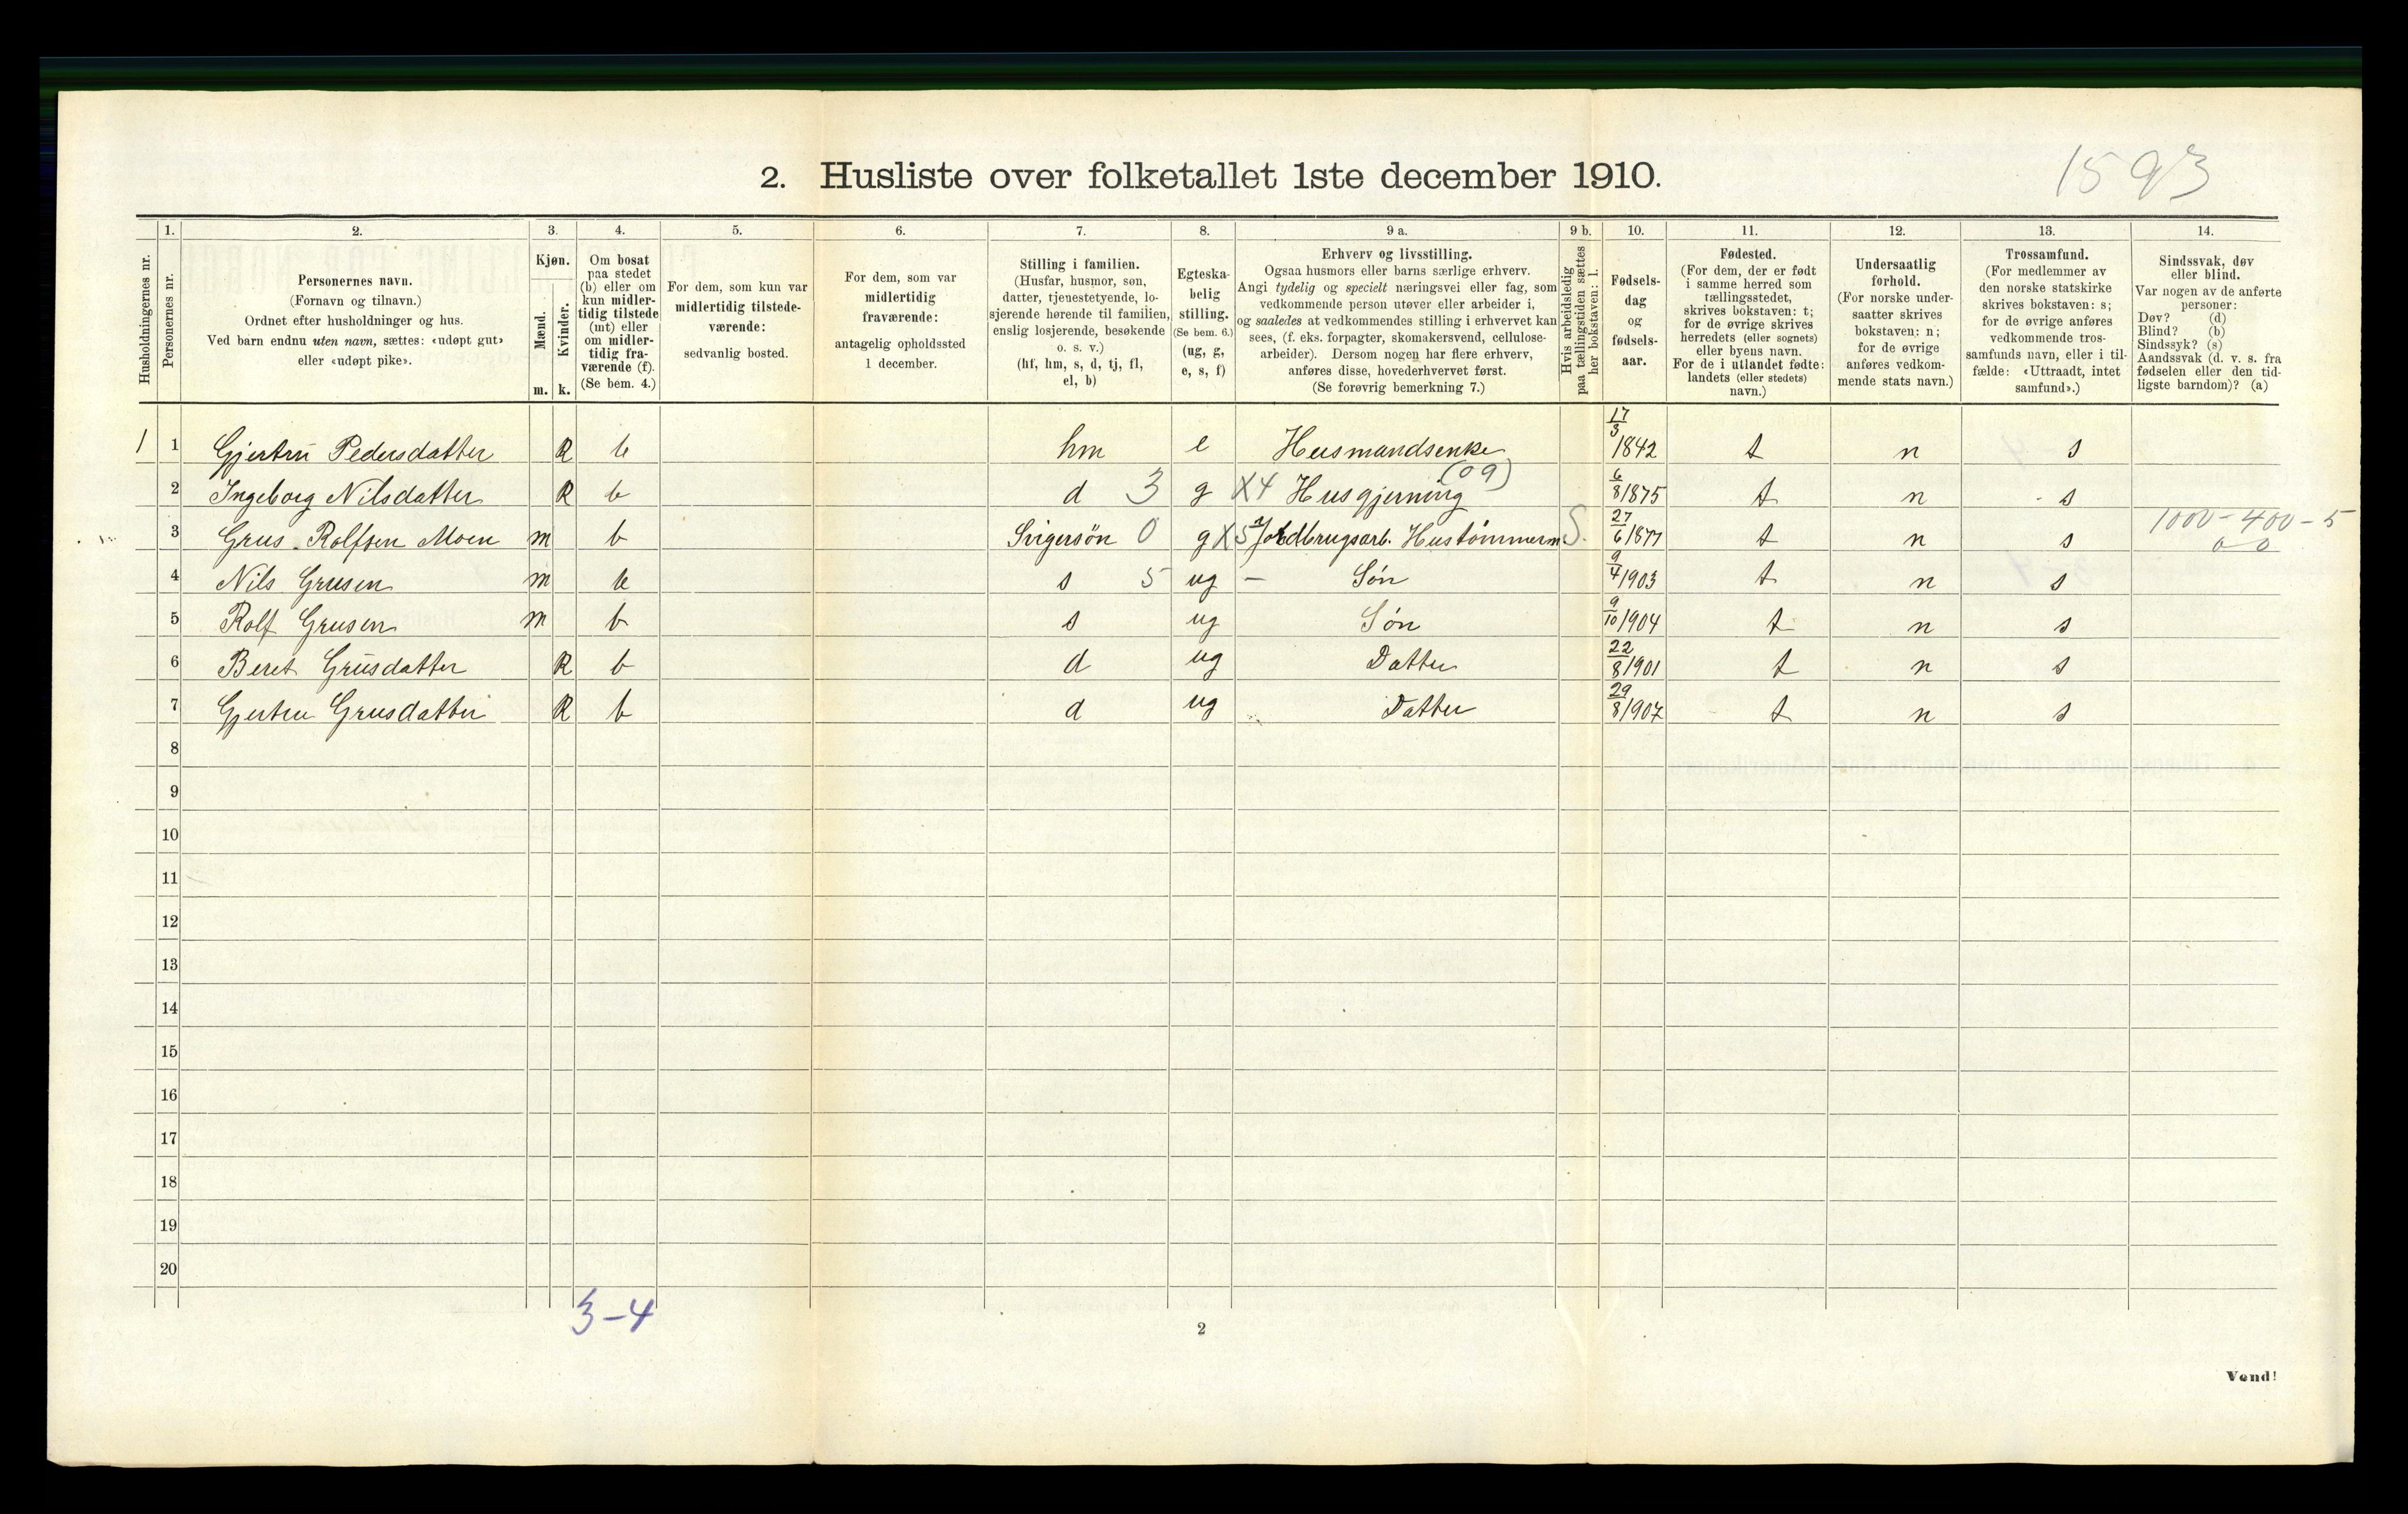 1593
2. Husliste over folketallet 1ste december 1910.
Husholdningernes nr.
1. 2. 3. 4. 5. 6. 7. 8. 9 a. 9 b. 10. 11. 12. 13. 14.
Personernes nr.
Personernes navn.
(Fornavn og tilnavn.)
Ordnet efter husholdninger og hus.
Ved barn endnu uten navn, sættes: «udøpt gut»
eller «udøpt pike».
Kjøn.
Mænd.
Kvinder.
m. k.
Om bosat
paa stedet
(b) eller om
kun midler-
tidig tilstede
(mt) eller
om midler-
tidig fra-
værende (f).
(Se bem. 4.)
For dem, som kun var
midlertidig tilstede-
værende:
sedvanlig bosted.
For dem, som var
midlertidig
fraværende:
antagelig opholdssted
1 december.
Stilling i familien.
(Husfar, husmor, søn,
datter, tjenestetyende, lo-
sjerende hørende til familien,
enslig losjerende, besøkende
o. s. v.)
(hf, hm, s, d, tj, fl,
el, b)
Egteska-
belig
stilling.
(Se bem. 6.)
(ug, g,
e, s, f)
Erhverv og livsstilling.
Ogsaa husmors eller barns særlige erhverv.
Angi tydelig og specielt næringsvei eller fag, som
vedkommende person utøver eller arbeider i,
og saaledes at vedkommendes stilling i erhvervet kan
sees, (f. eks. forpagter, skomakersvend, cellulose-
arbeider). Dersom nogen har flere erhverv,
anføres disse, hovederhvervet først.
(Se forøvrig bemerkning 7.)
Hvis arbeidsledig
paa tællingstiden sættes
her bokstaven: l.
Fødsels-
dag
og
fødsels-
aar.
Fødested.
(For dem, der er født
i samme herred som
tællingsstedet,
skrives bokstaven: t;
for de øvrige skrives
herredets (eller sognets)
eller byens navn.
For de i utlandet fødte:
landets (eller stedets)
navn.)
Undersaatlig
forhold.
(For norske under-
saatter skrives
bokstaven: n;
for de øvrige
anføres vedkom-
mende stats navn.)
Trossamfund.
(For medlemmer av
den norske statskirke
skrives bokstaven: s;
for de øvrige anføres
vedkommende tros-
samfunds navn, eller i til-
fælde: «Uttraadt, intet
samfund».)
Sindssvak, døv
eller blind.
Var nogen av de anførte
personer:
Døv? (d)
Blind? (b)
Sindssyk? (s)
Aandssvak (d. v. s. fra
fødselen eller den tid-
ligste barndom)? (a)
1 1 Gjertru Pedersdatter K b hm e Husmandsenke 17/3 1842 t n s
2 Ingeborg Nilsdatter K b d 3 g X4 Husgjerning (09) 6/8 1875 t n s
3 Grus Rolfsen Moen m b Svigersøn 0 g X5 Jordbrugsarb. Hustømmerm S. 27/6 1877 t n s 1000-400-5
0 0
4 Nils Grusen m b s 5 ug - Søn 9/4 1903 t n s
5 Rolf Grusen m b s ug Søn 9/10 1904 t n s
6 Beret Grusdatter K b d ug Datter 22/8 1901 t n s
7 Gjertru Grusdatter K b d ug Datter 29/8 1907 t n s
8
9
10
11
12
13
14
15
16
17
18
19
20
3-4
2
Vend!